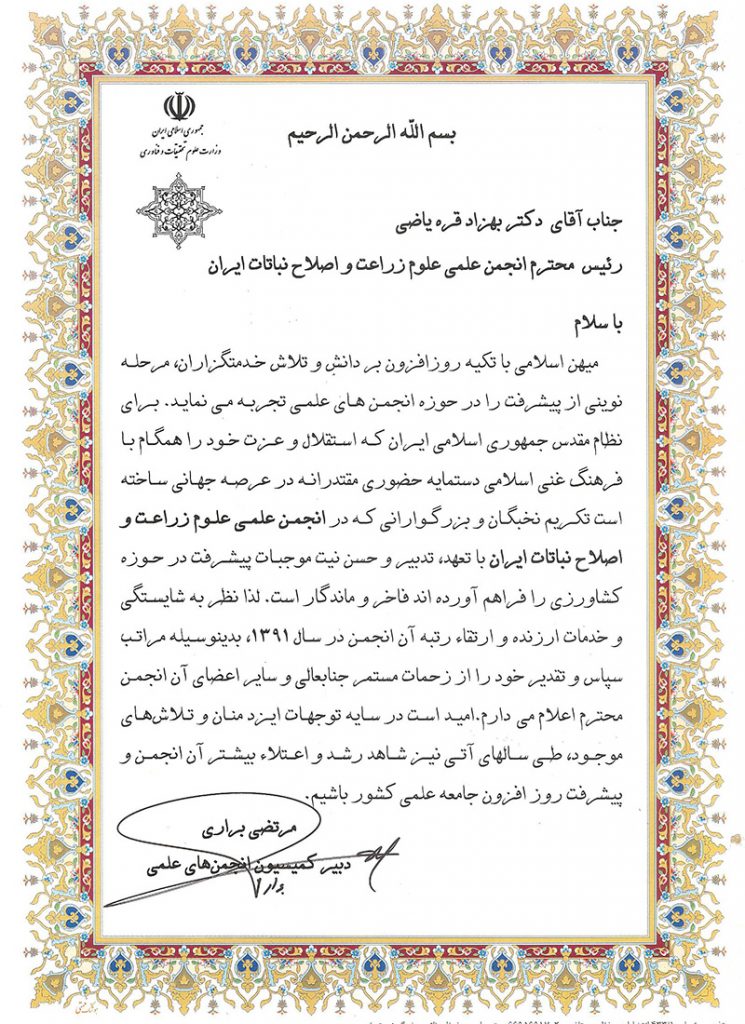 جمهوری اسلامی ایران
وزارت علوم تحقیقات و فناوری
بسم الله الرحمن الرحیم
جناب آقای دکتر بهزاد قره یاضی
رئیس محترم انجمن علمی علوم زراعت و اصلاح نباتات ایران
با سلام
میهن اسلامی با تکیه روزافزون بر دانش و تلاش خدمتگزاران، مرحله
نوینی از پیشرفت را در حوزه انجمن های علمی تجربه می نماید. برای
نظام مقدس جمهوری اسلامی ایران که استقلال و عزت خود را همگام با
فرهنگ غنی اسلامی دستمایه حضوری مقتدرانه در عرصه جهانی ساخته
است تکریم نخبگان و بزرگوارانی که در انجمن علمی علوم زراعت و
اصلاح نباتات ایران با تعهد، تدبیر و حسن نیت موجبات پیشرفت در حوزه
کشاورزی را فراهم آورده اند فاخر و ماندگار است. لذا نظر به شایستگی
و خدمات ارزنده و ارتقاء رتبه آن انجمن در سال ۱۳۹۱، بدینوسیله مراتب
سپاس و تقدیر خود را از زحمات مستمر جنابعالی و سایر اعضای آن انجمن
محترم اعلام می دارم.امید است در سایه توجهات ایزد منان و تلاش‌های
موجود، طی سالهای آتی نیز شاهد رشد و اعتلاء بیشتر آن انجمن و
پیشرفت روز افزون جامعه علمی کشور باشیم.
مرتضی براری
دبیر کمیسیون انجمن‌های علمی